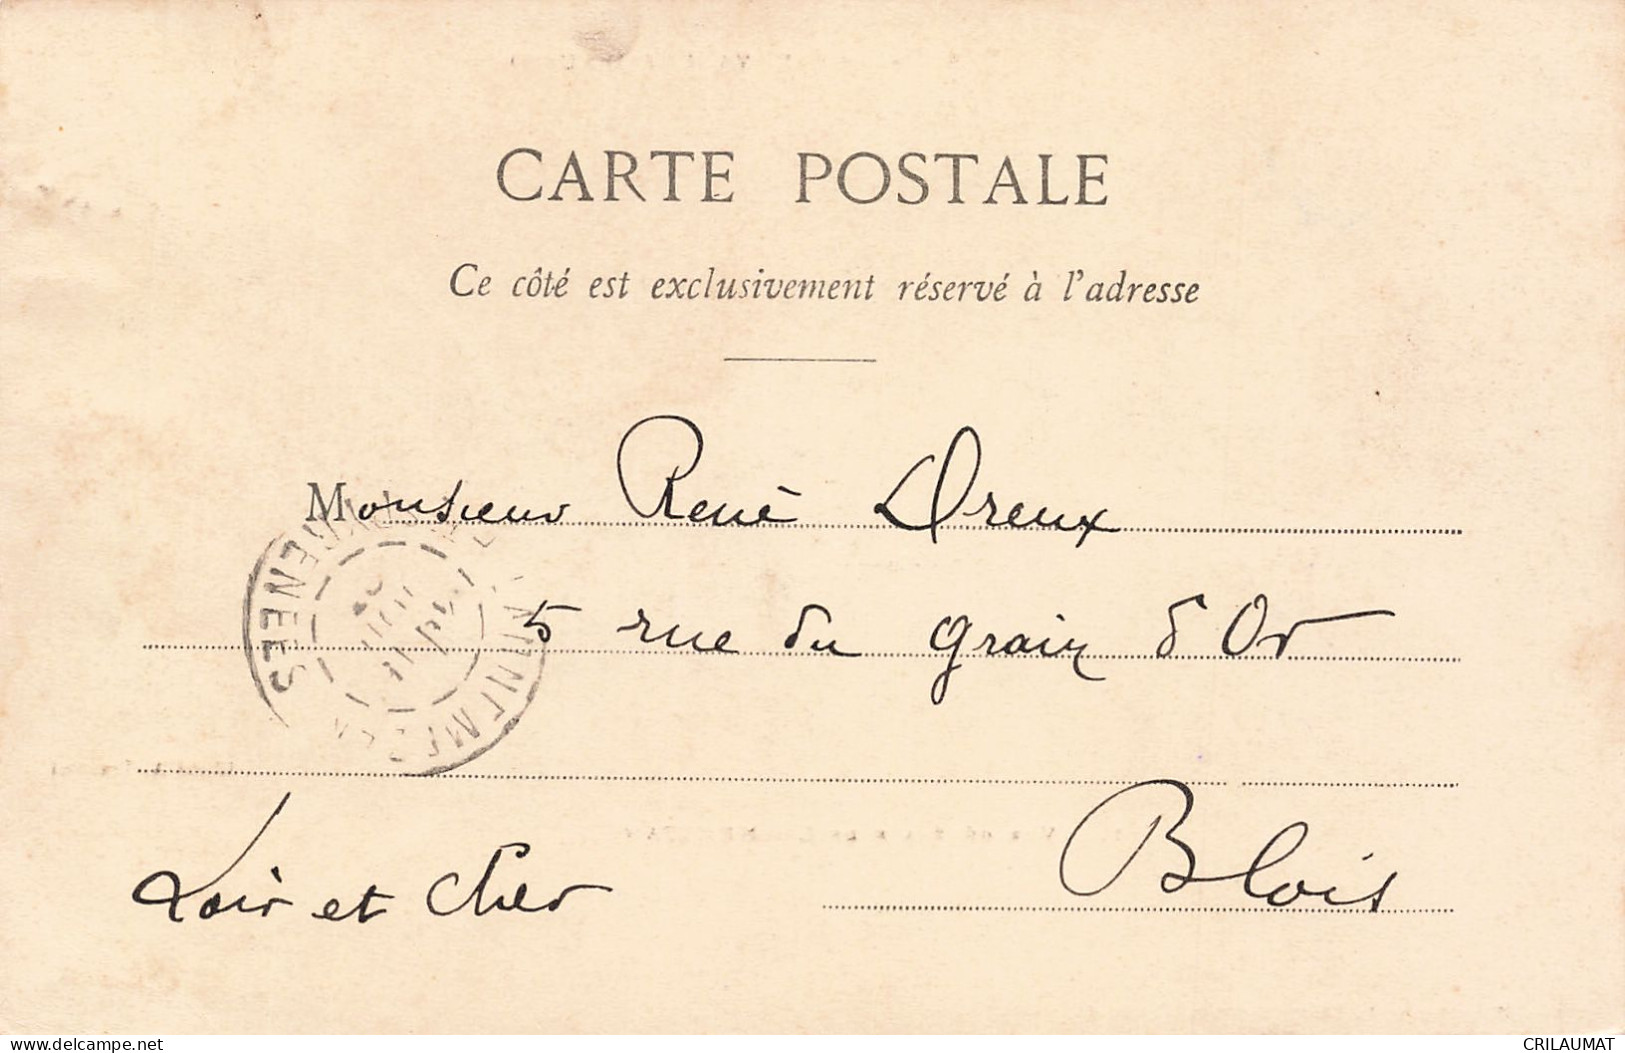 CARTE POSTALE
Ce côté est exclusivement réservé à l'adresse
Monsieur René Dreux
5 rue du Grain d'Or
Blois
Loir et Cher
https://www.delcampe.net
CRILAUMAT